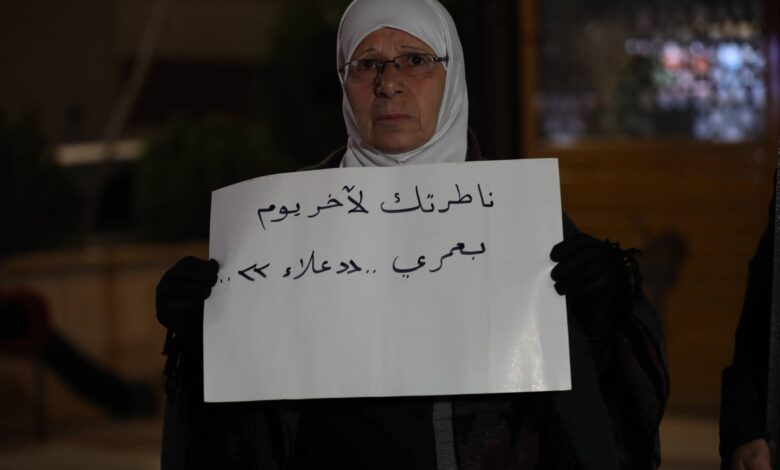 ناطرتك لآخر يوم
بعمري .. "علاء" ..